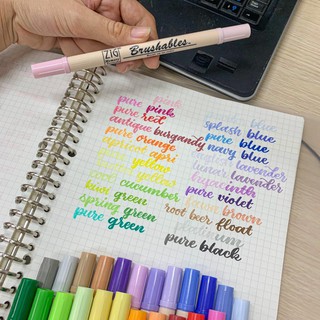 ZIG Brushables.
pink
pure pink
pure red
antique burgandy
pure orange
apricot apri
yellow
yellow
cucumber
kiwi green
spring green
pure green
blue
splash blue
pure blue
navy blue
lavender
lunar lavender
hyacinth
pure violet
brown
root beer float
platinum
pure black